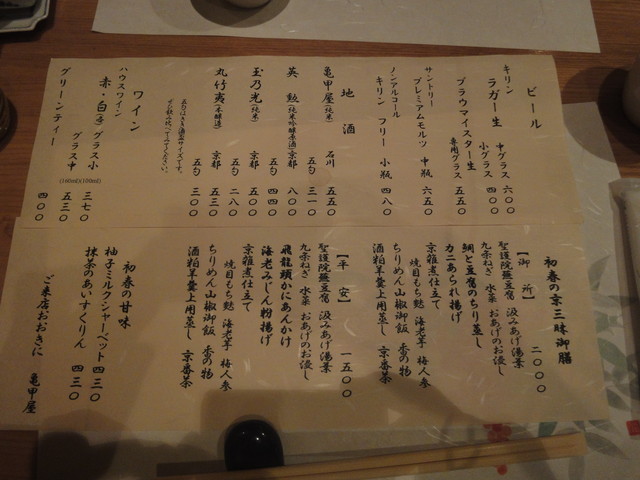 ビール
キリン
ラガー生 中グラス 六〇〇
小グラス 四〇〇
ブラウマイスター生
専用グラス 五五〇
サントリー
プレミアムモルツ 中瓶 六五〇
ノンアルコール
キリン フリー 小瓶 四八〇
地酒
亀甲屋(純米) 石川 五五〇
五勺 三一〇
英勲(純米吟醸原酒)京都 八〇〇
五勺 四四〇
玉乃光(純米) 京都 五〇〇
五勺 二八〇
丸竹夷(本醸造) 京都 五三〇
五勺 三〇〇
五勺はちょうど酒盃サイズです。
ワイン
ハウスワイン
赤・白(各) グラス小 三七〇
グラス中 五三〇
(160ml)(100ml)
グリーンティー 四〇〇
初春の京三昧御膳
【御所】 二〇〇〇
聖護院蕪豆腐 汲みあげ湯葉
九条ねぎ 水菜 おあげのお浸し
鯛と豆腐のちり蒸し
カニあられ揚げ
京雑煮仕立て
焼目もち麩 海老芋 梅人参
ちりめん山椒御飯 香の物
酒粕羊羹上用蒸し 京番茶
【平安】 一五〇〇
聖護院蕪豆腐 汲みあげ湯葉
九条ねぎ 水菜 おあげのお浸し
飛龍頭かにあんかけ
海老みじん粉揚げ
京雑煮仕立て
焼目もち麩 海老芋 梅人参
ちりめん山椒御飯 香の物
酒粕羊羹上用蒸し 京番茶
初春の甘味
柚子ミルクシャーベット 四三〇
抹茶のあいすくりん 四三〇
ご来店おおきに 亀甲屋